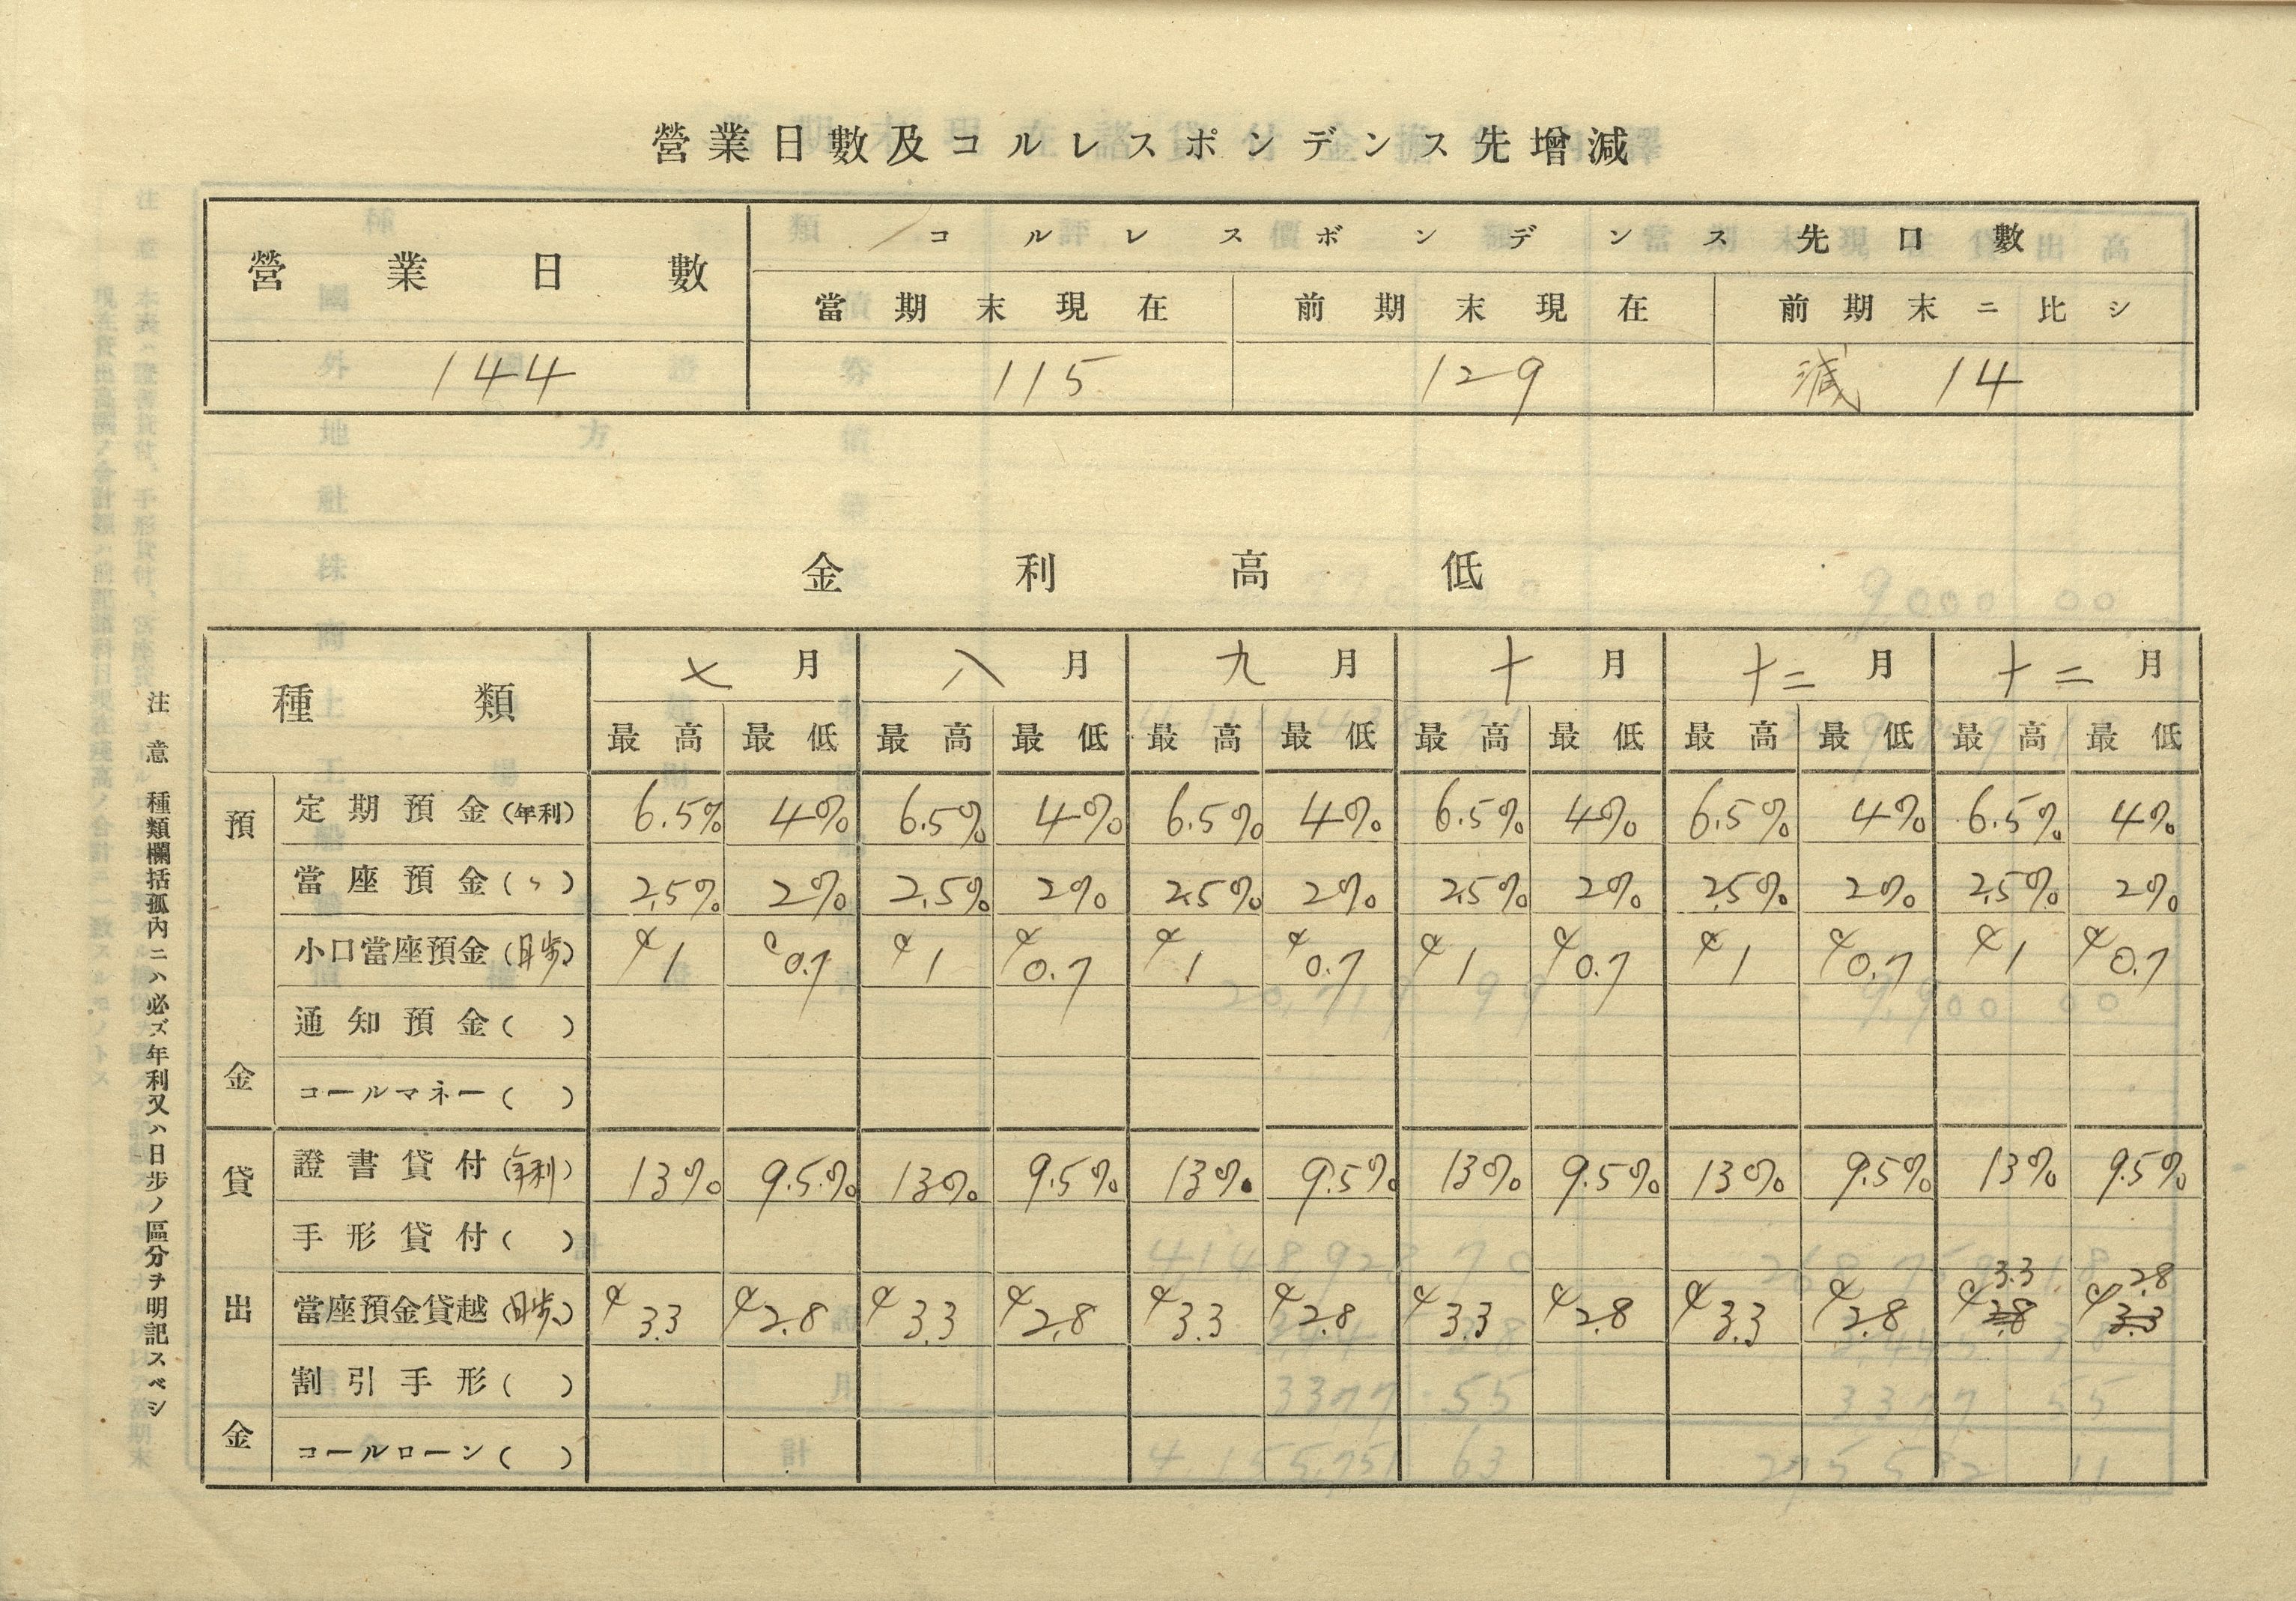 營業日數及コルレスポンデンス先增減
營業日數 コルレスポンデンス先口數
當期末現在 前期末現在 前期末ニ比シ
144 115 129 減 14
金利高低
種類 七月 八月 九月 十月 十二月 十二月
最高 最低 最高 最低 最高 最低 最高 最低 最高 最低 最高 最低
預金
定期預金(年利) 6.5% 4% 6.5% 4% 6.5% 4% 6.5% 4% 6.5% 4% 6.5% 4%
當座預金(〃) 2.5% 2% 2.5% 2% 2.5% 2% 2.5% 2% 2.5% 2% 2.5% 2%
小口當座預金(日歩) 1 0.7 1 0.7 1 0.7 1 0.7 1 0.7 1 0.7
通知預金( )
コールマネー( )
貸出金
證書貸付(年利) 13% 9.5% 13% 9.5% 13% 9.5% 13% 9.5% 13% 9.5% 13% 9.5%
手形貸付( )
當座預金貸越(日歩) 3.3 2.8 3.3 2.8 3.3 2.8 3.3 2.8 3.3 2.8 3.3 2.8 2.8 3.3
割引手形( )
コールローン( )
注意 種類欄括孤內ニハ必ズ年利又ハ日步ノ區分ヲ明記スベシ